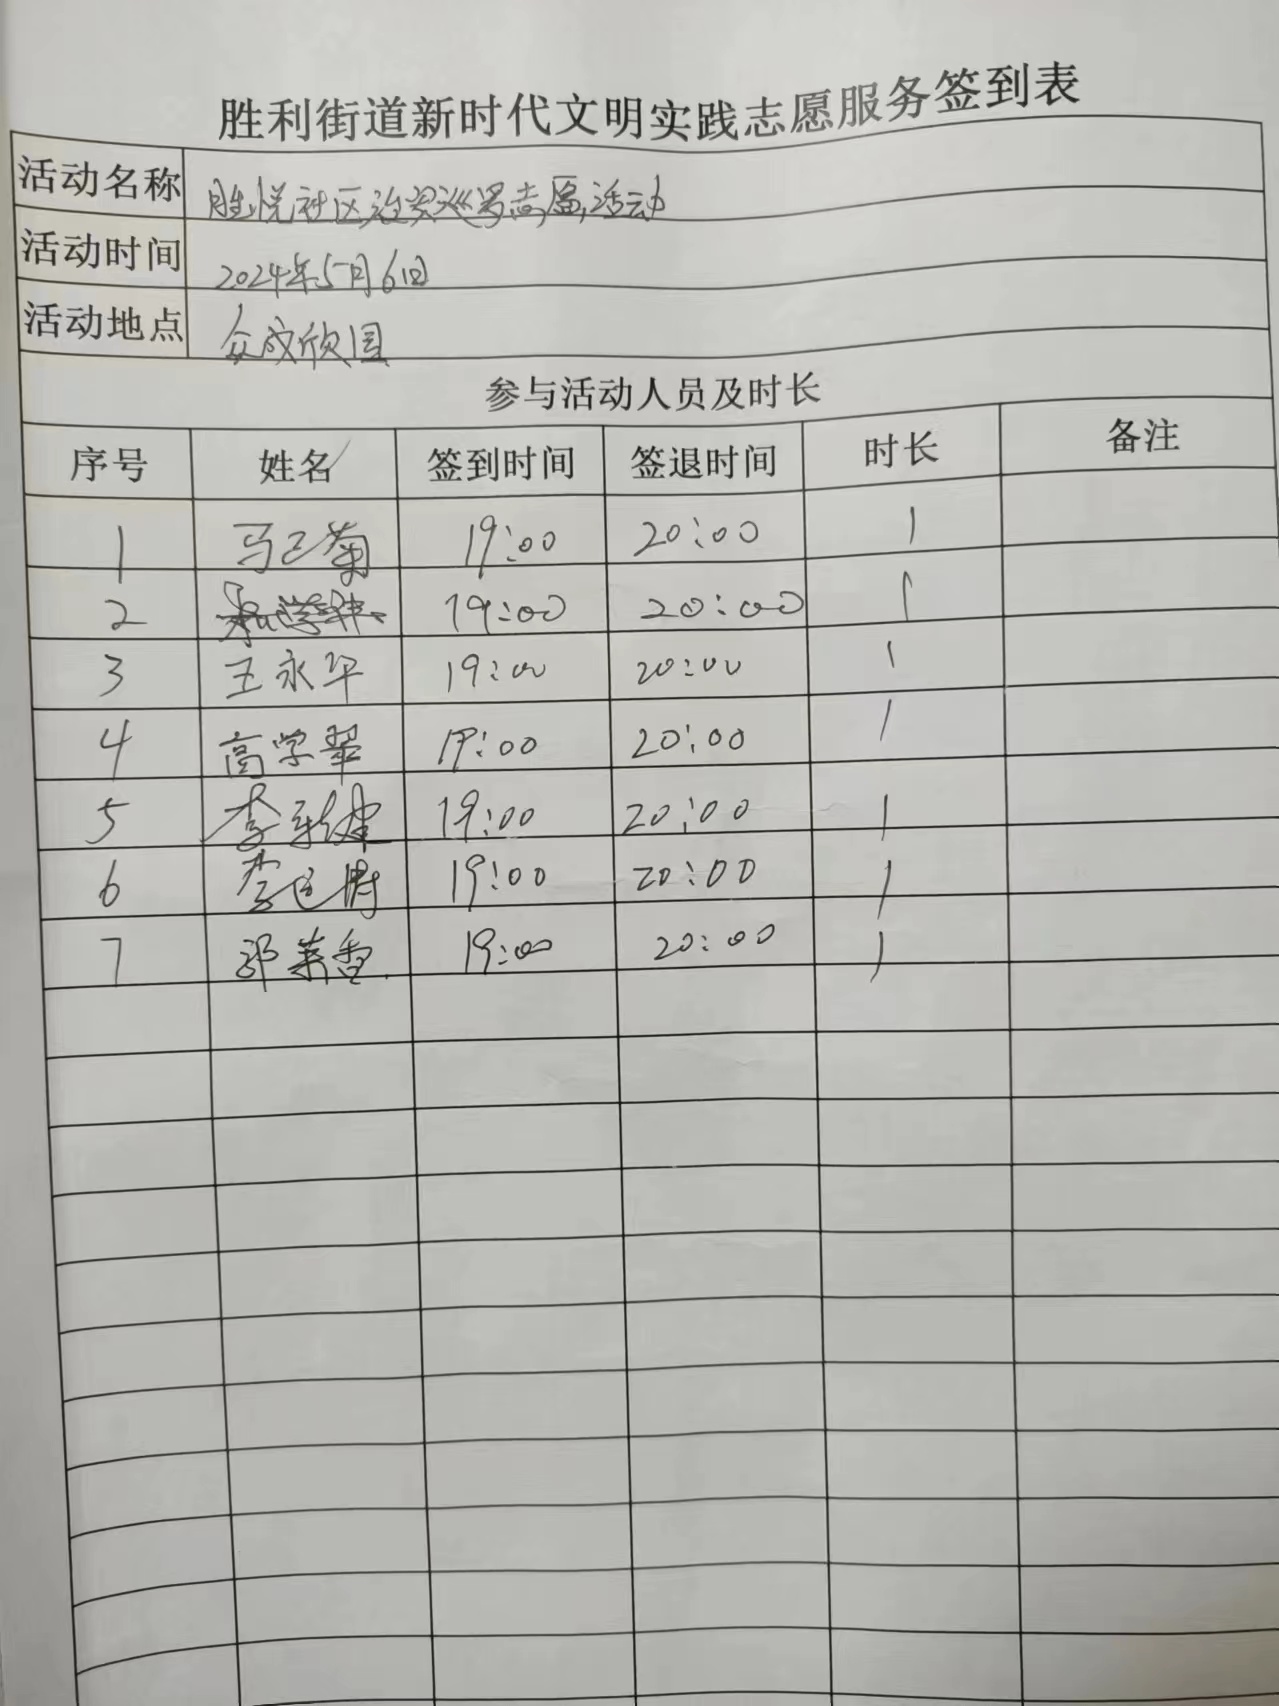 胜利街道新时代文明实践志愿服务签到表
活动名称 胜悦社区治安巡逻志愿活动
活动时间 2024年5月6日
活动地点 众成欣园
参与活动人员及时长
序号 姓名 签到时间 签退时间 时长 备注
1 马己菊 19:00 20:00 1
2 19:00 20:00 1
3 王永华 19:00 20:00 1
4 高学翠 19:00 20:00 1
5 李 19:00 20:00 1
6 李 19:00 20:00 1
7 郭 香 19:00 20:00 1